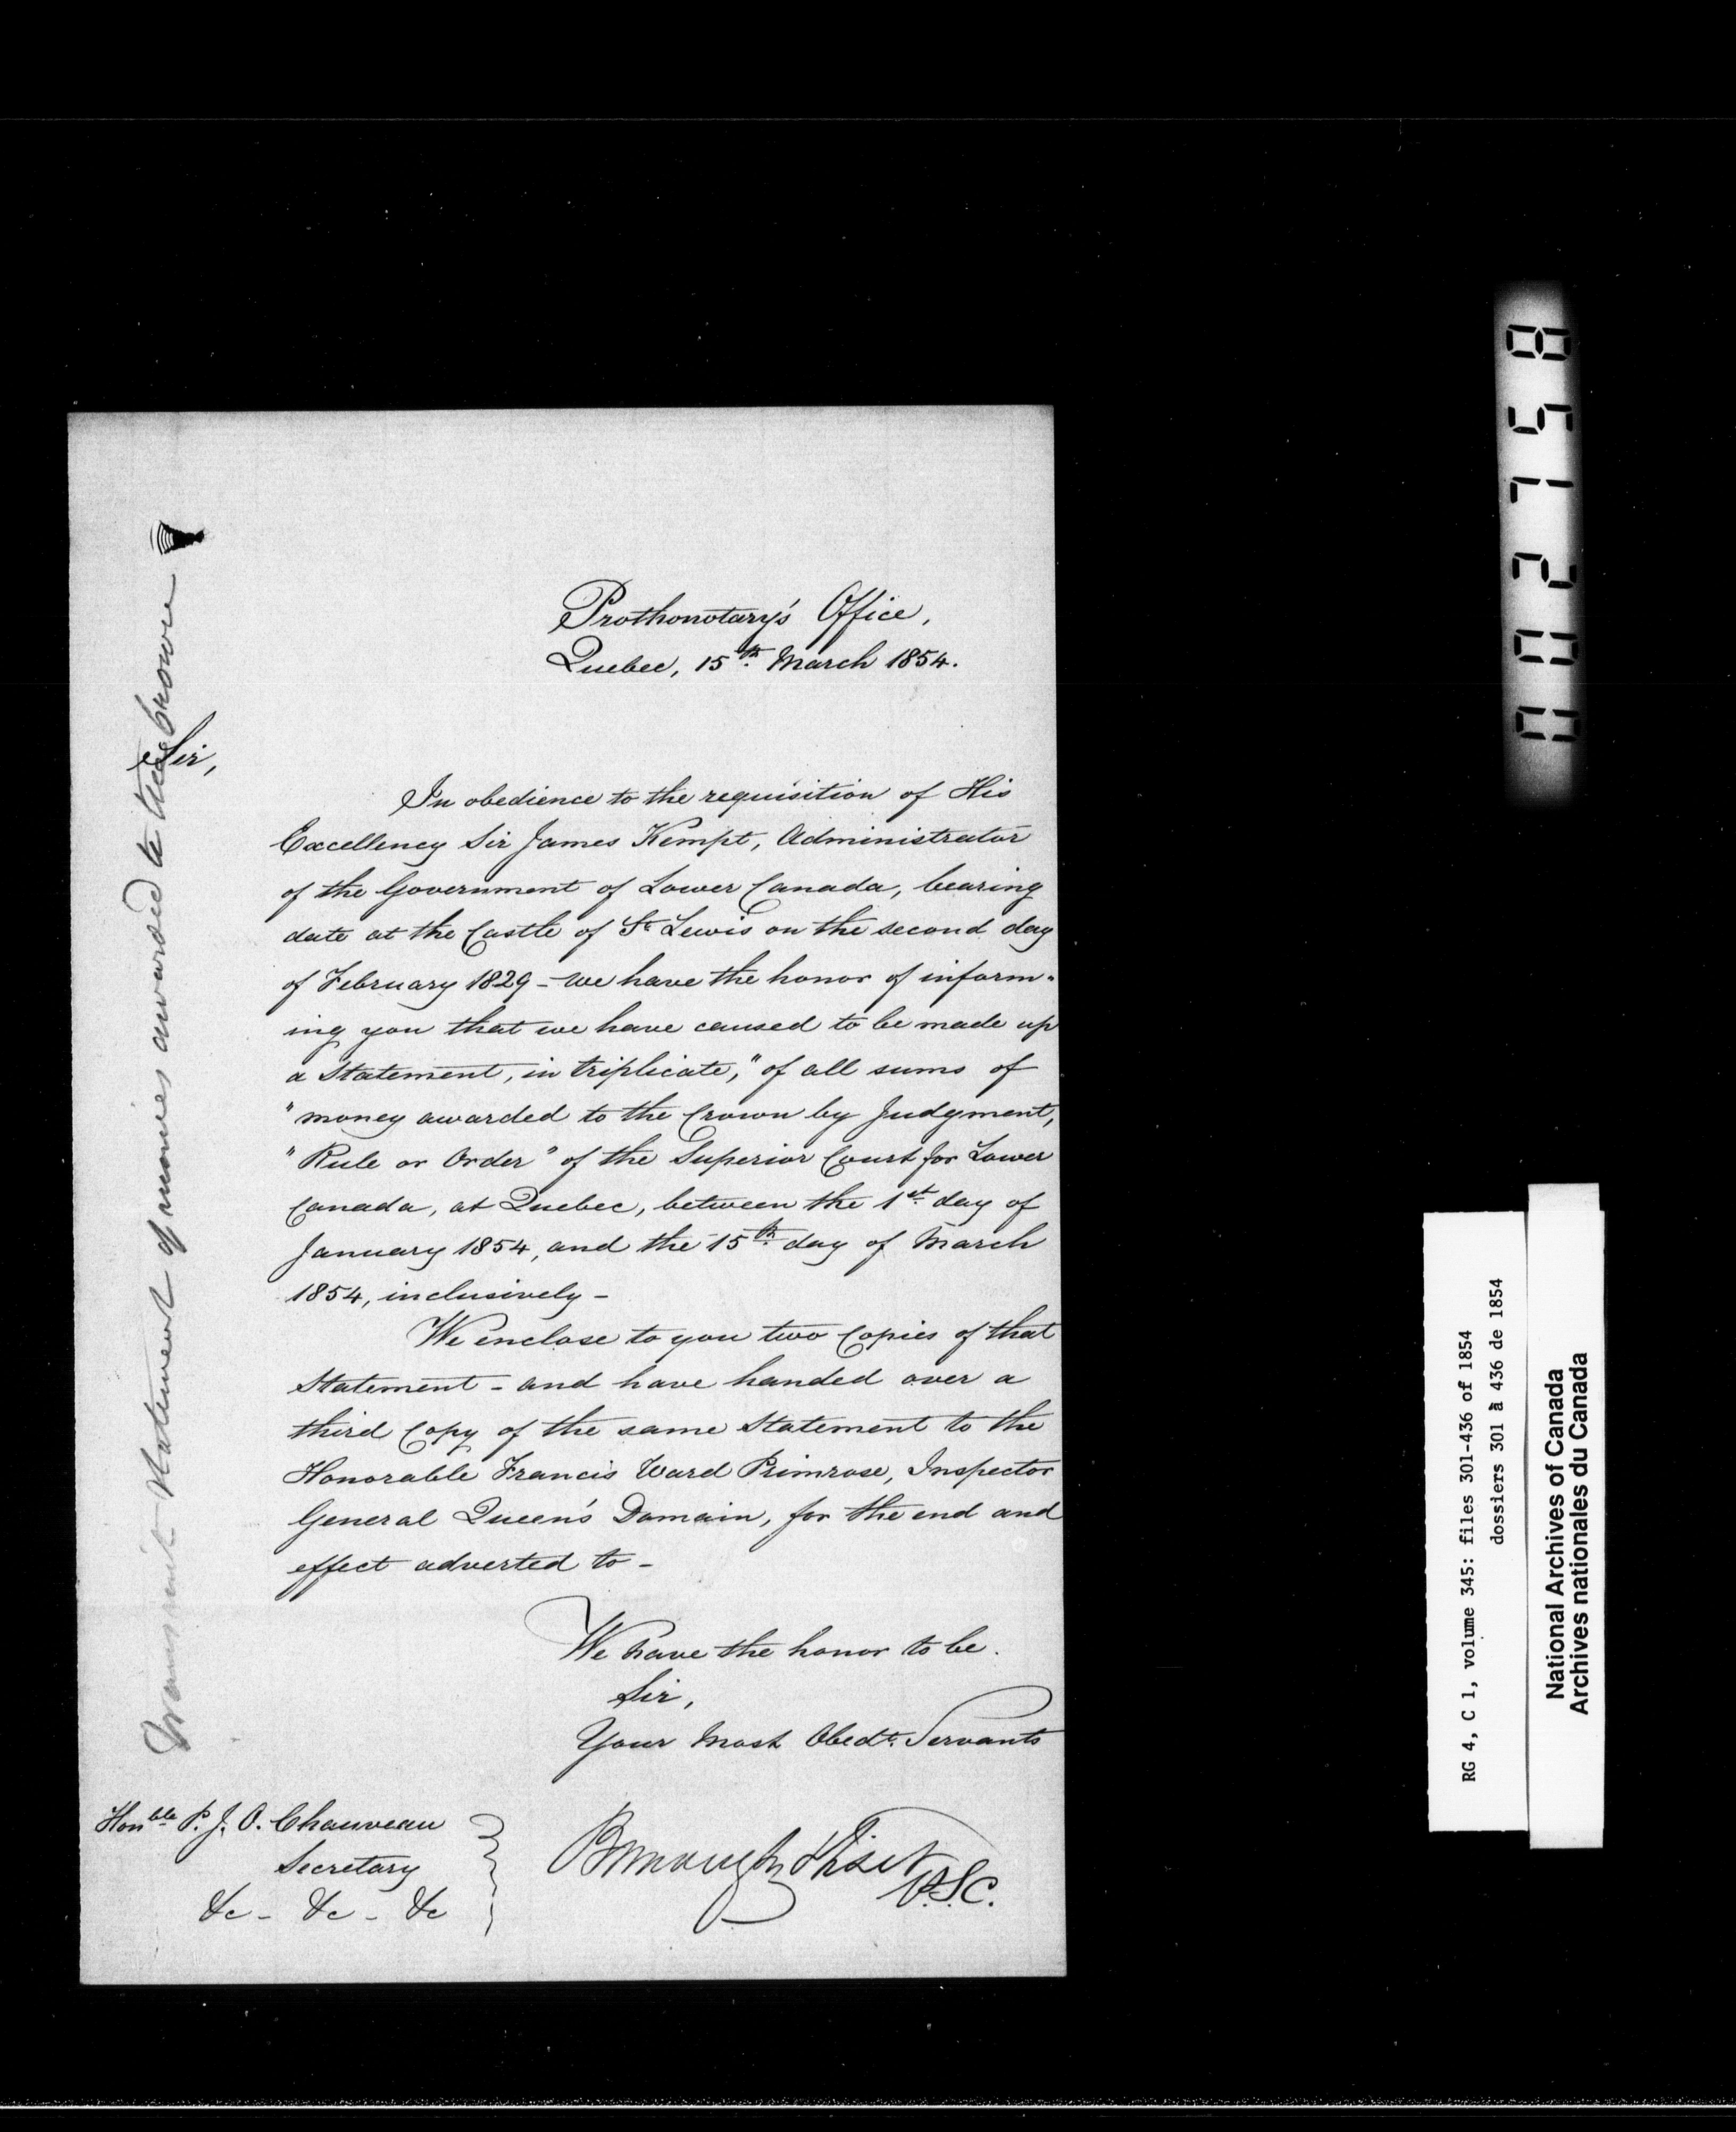 Prothonotary's Office,
Quebec, 15th. March 1854.
Sir,
In obedience to the requisition of His
Excellency Sir James Kempt, Administrator
of the Government of Lower Canada, bearing
date at the Castle of St. Lewis on the second day
of February 1829 - we have the honor of inform-
ing you that we have caused to be made up
a Statement, in triplicate, "of all sums of
"money awarded to the Crown by Judgment,
"Rule or Order" of the Superior Court for Lower
Canada, at Quebec, between the 1st. day of
January 1854, and the 15th. day of March
1854, inclusively -
We enclose to you two Copies of that
Statement - and have handed over a
third Copy of the same Statement to the
Honorable Francis Ward Primrose, Inspector
General Queen's Domain, for the end and
effect adverted to -
We have the honor to be.
Sir,
Your Most Obedt. Servants
Burroughs & Fiset
P.S.C.
Honble P. J. O. Chauveau
Secretary
&c - &c - &c
Transmit Statement of monies awarded to the Crown
002758
RG 4, C 1, volume 345: files 301-436 of 1854
dossiers 301 à 436 de 1854
National Archives of Canada
Archives nationales du Canada